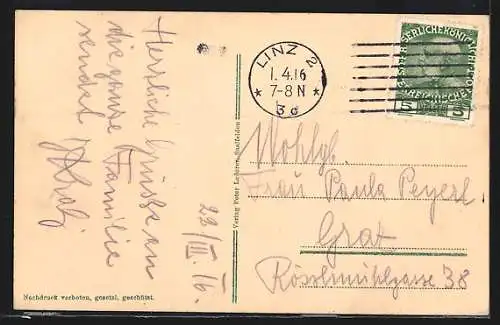 Herzliche Grüsse an
die ganze Familie
sendet
23/III. 16.
Nachdruck verboten, gesetzl. geschützt.
Verlag Peter Lederer, Saalfelden
LINZ 2
1. 4. 16
7-8 N
* 3d *
5 5
Wohlgb.
Frau Paula Peyerl
Graz
Rösselmühlgasse 38